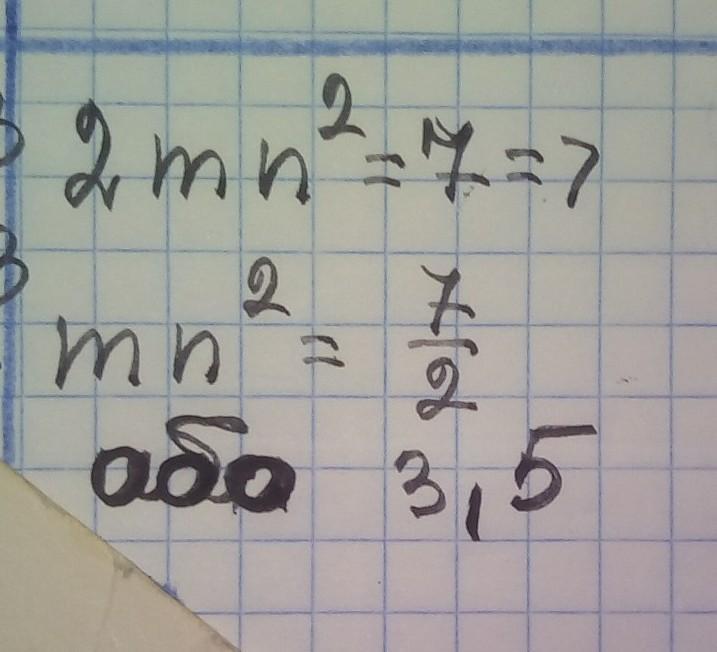 2mn² = 7 =>
mn² = 7/2
або 3,5